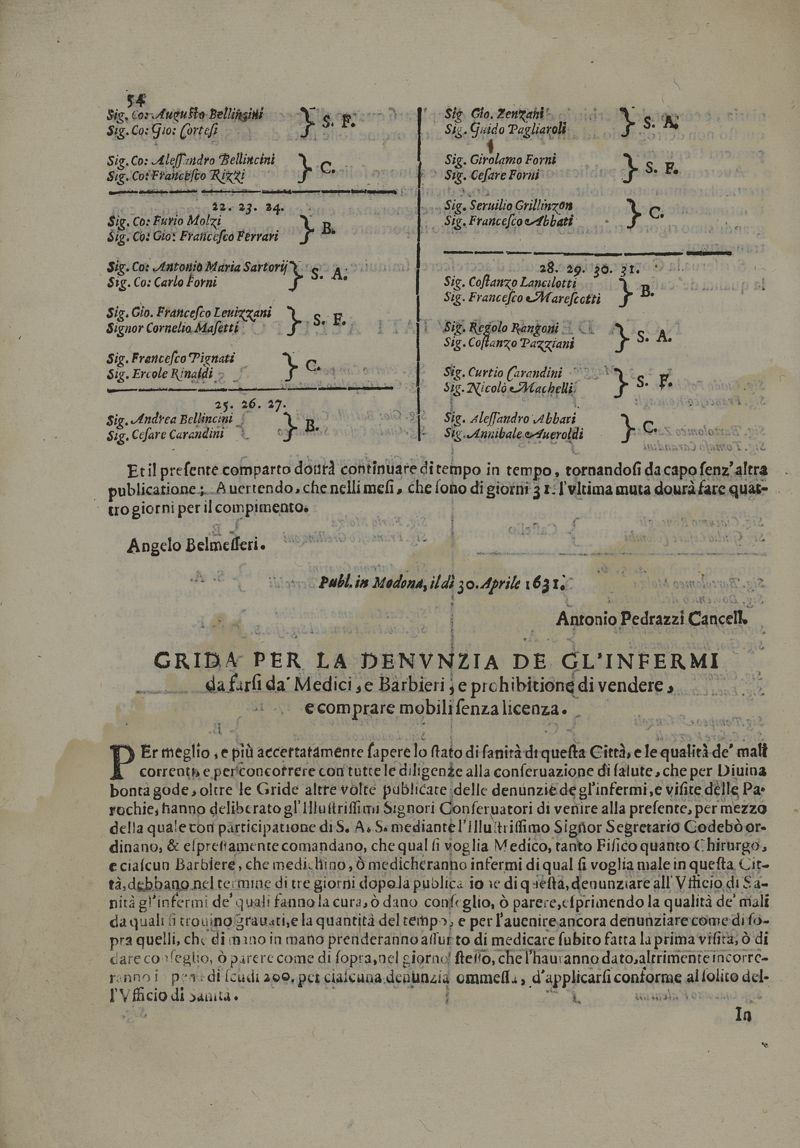 54
Sig. Co: Augusto Bellingini
Sig. Co: Gio: Cortesi } S. F.
Sig. Co: Alessandro Bellincini
Sig. Co: Francesco Rizzi } C.
22. 23. 24.
Sig. Co: Furio Molzi
Sig. Co: Gio: Francesco Ferrari } B.
Sig. Co: Antonio Maria Sartorij
Sig. Co: Carlo Forni } S. A.
Sig. Gio. Francesco Leuizzani
Signor Cornelio Masetti } S. F.
Sig. Francesco Pignati
Sig. Ercole Rinaldi } C.
25. 26. 27.
Sig. Andrea Bellincini
Sig. Cesare Carandini } B.
Sig. Gio. Zenzani
Sig. Guido Pagliaroli } S. A.
Sig. Girolamo Forni
Sig. Cesare Forni } S. F.
Sig. Seruilio Grillinzon
Sig. Francesco Abbati } C.
28. 29. 30. 31.
Sig. Costanzo Lancilotti
Sig. Francesco Marescotti } B.
Sig. Regolo Rangoni
Sig. Costanzo Pazziani } S. A.
Sig. Curtio Carandini
Sig. Nicolò Machelli } S. F.
Sig. Alessandro Abbati
Sig. Annibale Aueroldi } C.
Et il presente comparto dourà continuare di tempo in tempo, tornandosi da capo senz' altra
publicatione; Auertendo, che nelli mesi, che sono di giorni 31. l'vltima muta dourà fare quat-
tro giorni per il compimento.
Angelo Belmesseri.
Publ. in Modona, il dì 30. Aprile 1631.
Antonio Pedrazzi Cancell.
GRIDA PER LA DENVNZIA DE GL'INFERMI
da farsi da' Medici, e Barbieri; e prohibitione di vendere,
e comprare mobili senza licenza.
PEr meglio, e più accertatamente sapere lo stato di sanità di questa Città, e le qualità de' mali
correnti, e per concorrere con tutte le diligenze alla conseruazione di salute, che per Diuina
bontà gode, oltre le Gride altre volte publicate delle denunzie de gl'infermi, e visite delle Pa-
rochie, hanno deliberato gl'Illustrissimi Signori Conseruatori di venire alla presente, per mezzo
della quale con participatione di S. A. S. mediante l'Illustrissimo Signor Segretario Codebò or-
dinano, & espressamente comandano, che qual si voglia Medico, tanto Fisico quanto Chirurgo,
e ciascun Barbiere, che medichino, ò medicheranno infermi di qual si voglia male in questa Cit-
tà, debbano nel termine di tre giorni dopo la publicazione di questa, denunziare all' Vfficio di Sa-
nità gl'infermi de' quali fanno la cura, ò dano conseglio, ò parere, esprimendo la qualità de' mali
da quali si trouino grauati, e la quantità del tempo, e per l'auenire ancora denunziare come di so-
pra quelli, che di mano in mano prenderanno assunto di medicare subito fatta la prima visita, ò di
dare conseglio, ò parere come di sopra, nel giorno stesso, che l'hauranno dato, altrimente incorre-
ranno in pena di scudi 200. per ciascuna denunzia ommessa, d'applicarsi conforme al solito del-
l'Vfficio di sanità.
In